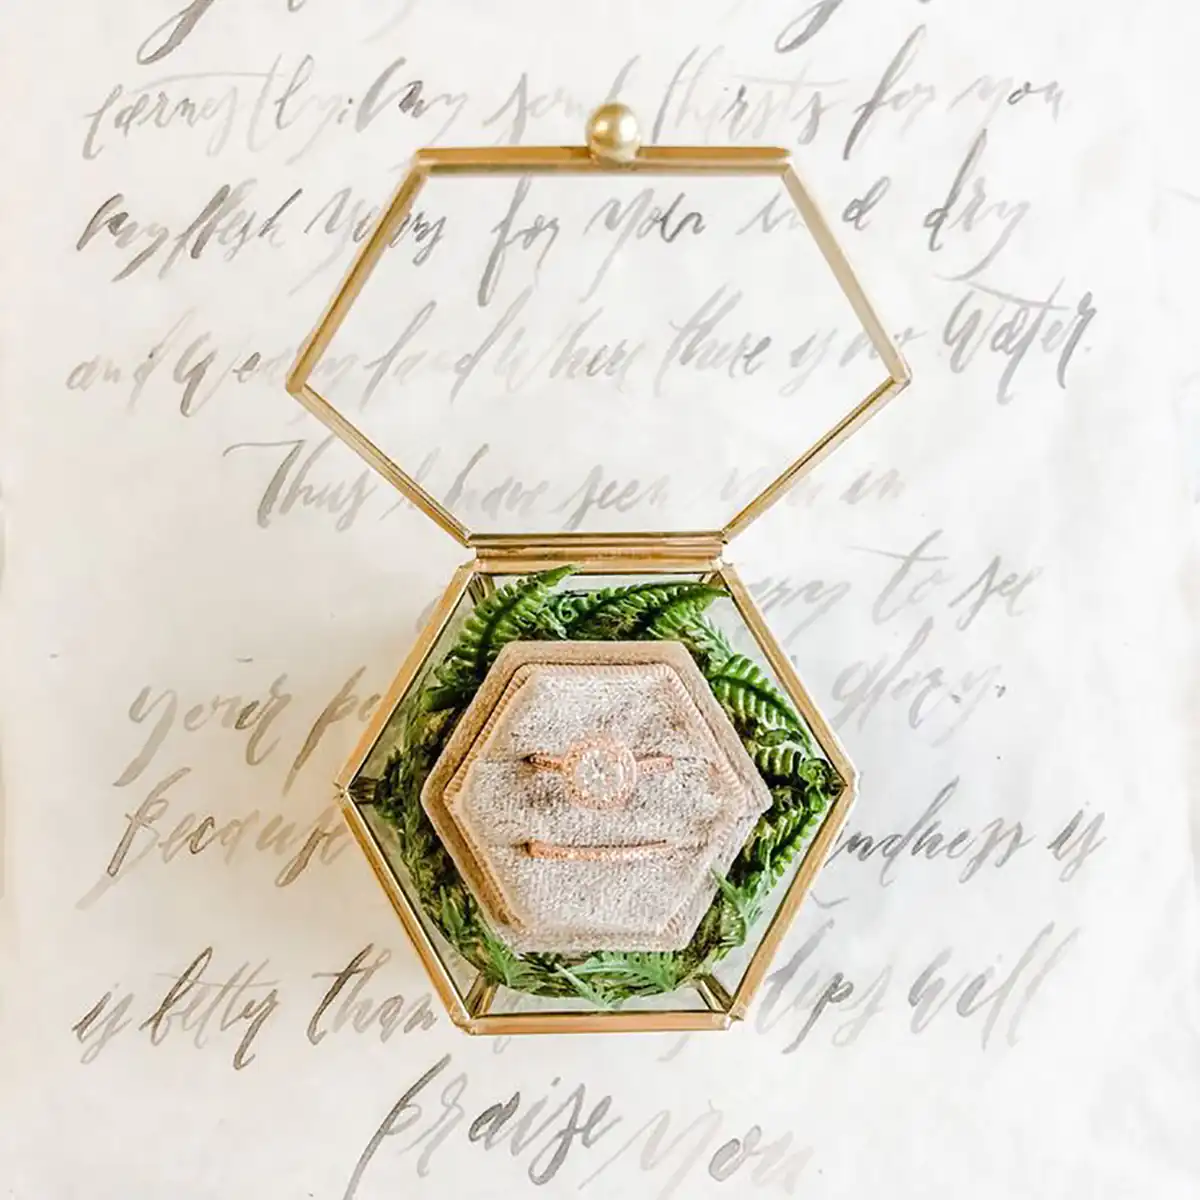 earnestly; my soul thirsts for you
my flesh yearns for you in a dry
and weary land where there is no water.
Thus I have seen you in
to see
your glory.
Because kindness is
is better than lips will
praise you